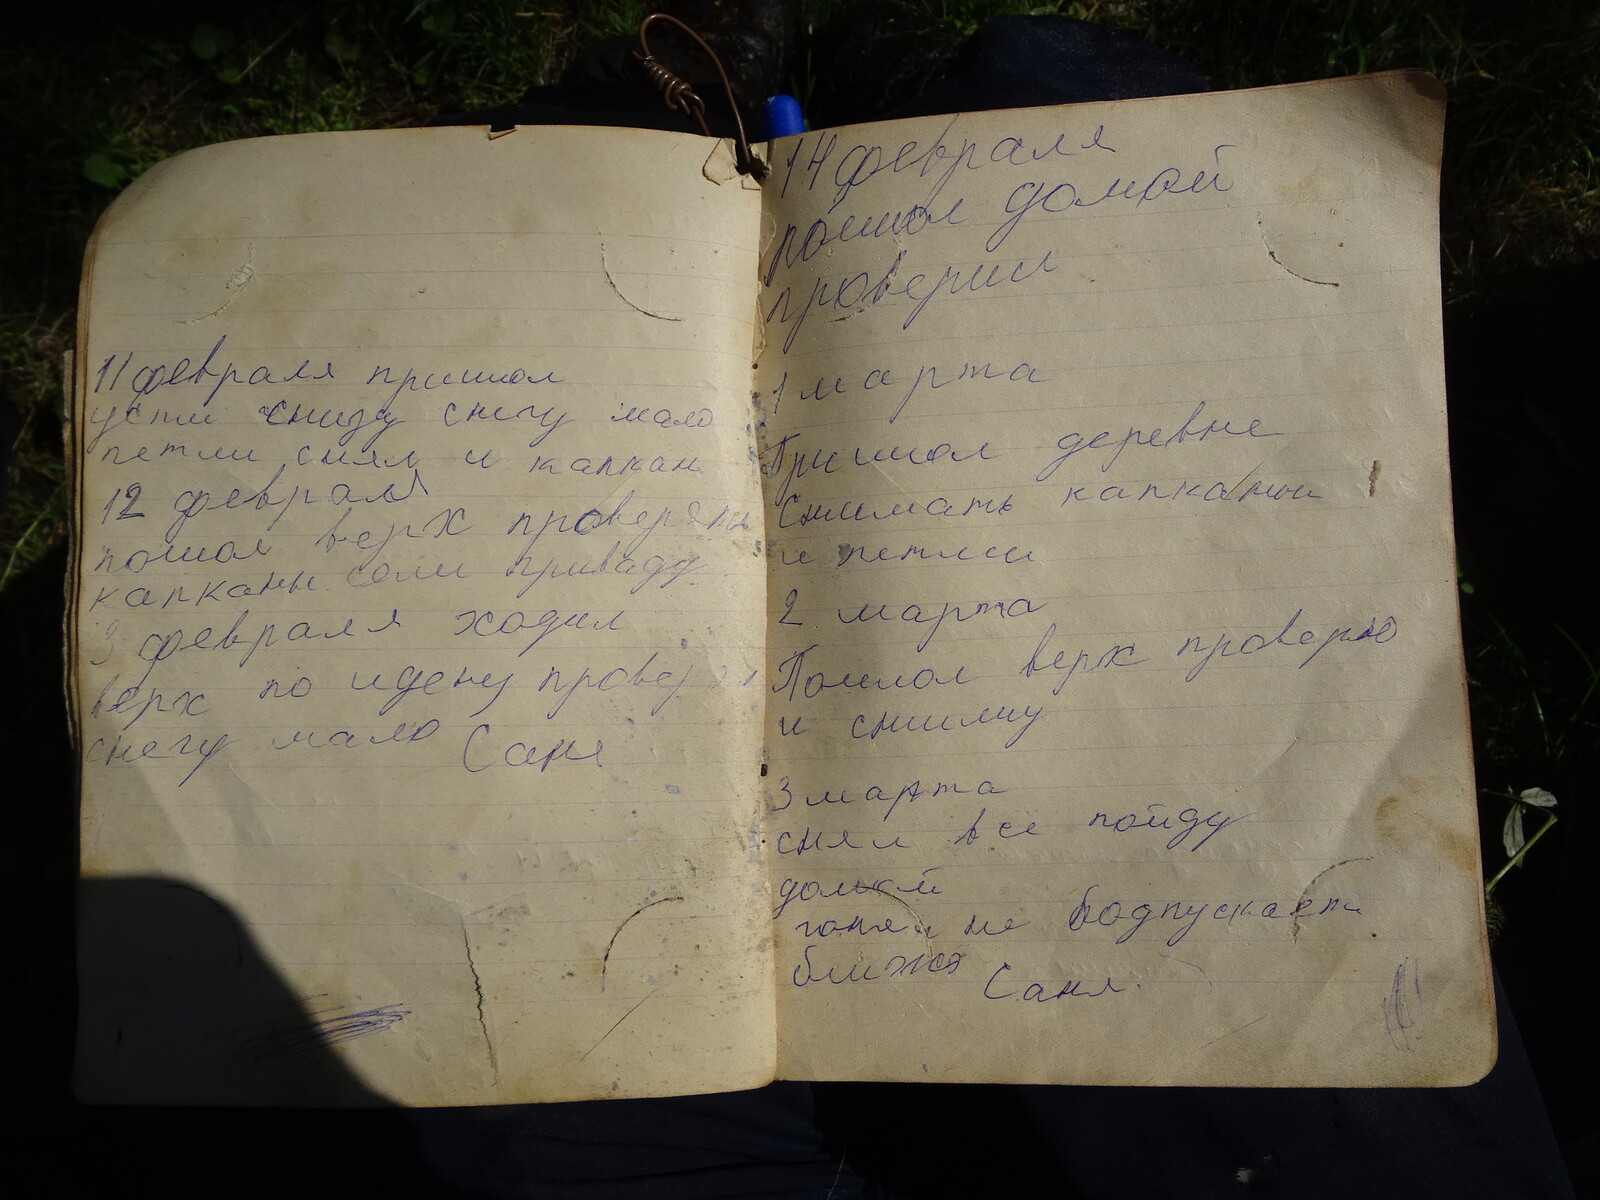 11 февраля пришол
усти снизу снегу мало
петли снял и капкан
12 феврал
пошол верх проверять
капканы если приваду
3 февраля ходил
верх по идену проверял
снегу мало Саня
14 февраля
пошол домой
проверил
1 марта
Пришол деревне
Снимать капканы
и петли
2 марта
Пошол верх проверю
и сниму
3 марта
снял все пойду
домой
не подпускает
ближе
Саня.